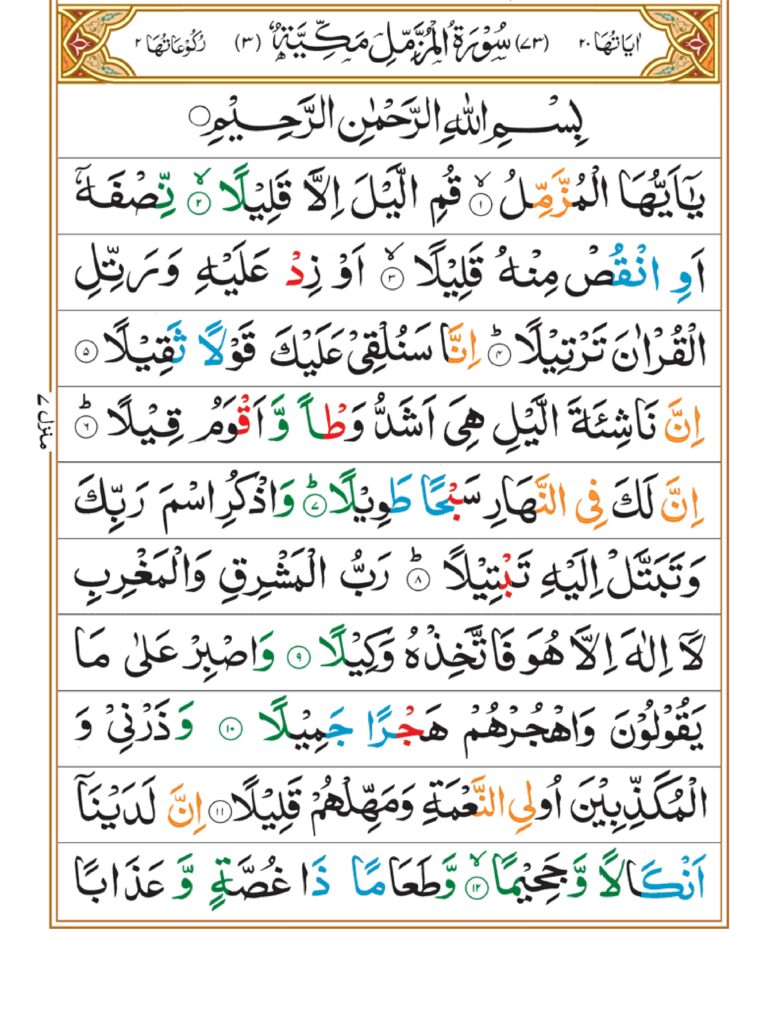 اٰيَاتُهَا ٢٠ (٧٣) سُوْرَةُ الْمُزَّمِّلِ مَكِّيَّةٌ (٣) رُكُوْعَاتُهَا ٢
بِسْمِ اللّٰهِ الرَّحْمٰنِ الرَّحِيْمِ۝
يٰۤاَيُّهَا الْمُزَّمِّلُ ۙ‏﴿۱﴾ قُمِ الَّيْلَ اِلَّا قَلِيْلًا ۙ‏﴿۲﴾ نِّصْفَهٗۤ
اَوِ انْقُصْ مِنْهُ قَلِيْلًا ۙ‏﴿۳﴾ اَوْ زِدْ عَلَيْهِ وَرَتِّلِ
الْقُرْاٰنَ تَرْتِيْلًا ؕ‏﴿۴﴾ اِنَّا سَنُلْقِىْ عَلَيْكَ قَوْلًا ثَقِيْلًا ﴿۵﴾
اِنَّ نَاشِئَةَ الَّيْلِ هِىَ اَشَدُّ وَطْاً وَّاَقْوَمُ قِيْلًا ؕ‏﴿۶﴾
اِنَّ لَكَ فِى النَّهَارِ سَبْحًا طَوِيْلًا ؕ‏﴿۷﴾ وَاذْكُرِ اسْمَ رَبِّكَ
وَتَبَتَّلْ اِلَيْهِ تَبْتِيْلًا ؕ‏﴿۸﴾ رَبُّ الْمَشْرِقِ وَالْمَغْرِبِ
لَاۤ اِلٰهَ اِلَّا هُوَ فَاتَّخِذْهُ وَكِيْلًا ﴿۹﴾ وَاصْبِرْ عَلٰى مَا
يَقُوْلُوْنَ وَاهْجُرْهُمْ هَجْرًا جَمِيْلًا ﴿۱۰﴾ وَذَرْنِىْ وَ
الْمُكَذِّبِيْنَ اُولِى النَّعْمَةِ وَمَهِّلْهُمْ قَلِيْلًا ﴿۱۱﴾ اِنَّ لَدَيْنَاۤ
اَنْكَالًا وَّجَحِيْمًا ۙ‏﴿۱۲﴾ وَّطَعَامًا ذَا غُصَّةٍ وَّعَذَابًا
منزل ۷